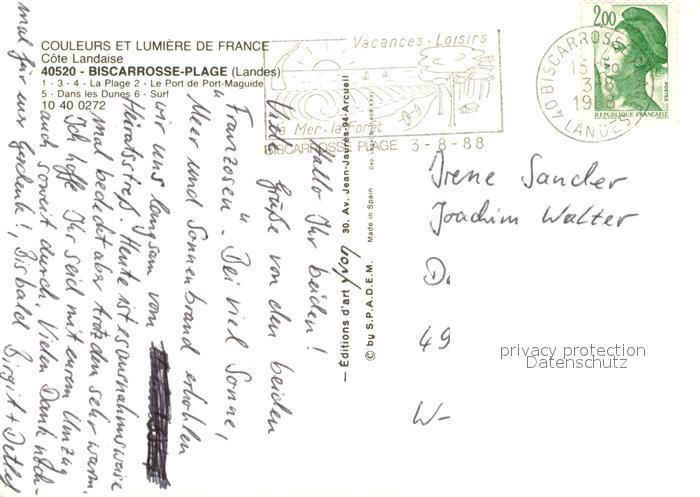 COULEURS ET LUMIÈRE DE FRANCE
Côte Landaise
40520 - BISCARROSSE-PLAGE (Landes)
1 - 3 - 4 - La Plage 2 - Le Port de Port-Maguide
5 - Dans les Dunes 6 - Surf
10 40 0272
Vacances - Loisirs
La Mer - la Forêt
BISCARROSSE PLAGE 3-8-88
40 BISCARROSSE
15 30
3-8
1988
LANDES
2,00
POSTES
REPUBLIQUE FRANCAISE
Hallo Ihr beiden!
Viele Grüße von den beiden
"Franzosen". Bei viel Sonne,
Meer und Sonnenbrand erholen
wir uns langsam vom
Heiratsstreß. Heute ist es ausnahmsweise
mal bedeckt aber trotzdem sehr warm.
Ich hoffe Ihr seid mit eurem Umzug
auch soweit durch. Vielen Dank noch-
mal für euer Geschenk!, Bis bald Birgit + Detlef
— Éditions d'art yvon 30. Av. Jean-Jaurès-94-Arcueil
© by S.P.A.D.E.M. Made in Spain
Irene Sander
Joachim Walter
D.
49
W-
privacy protection
Datenschutz